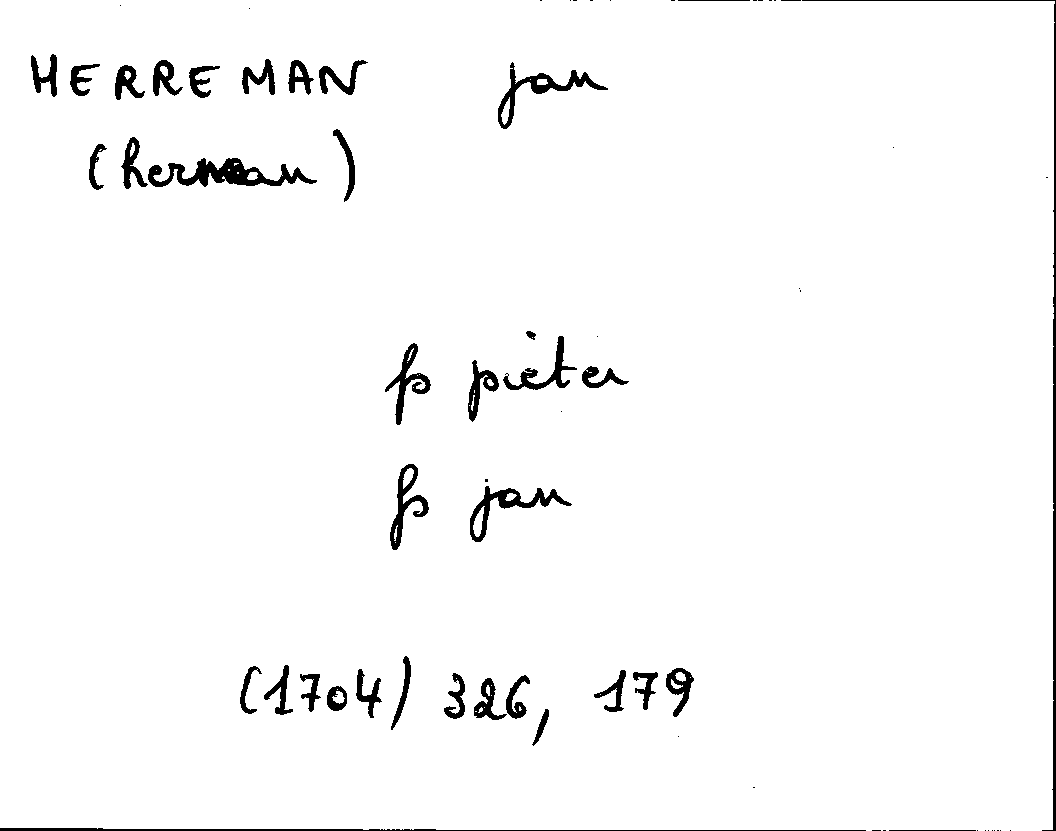 HERREMAN jan
(herman)
fs pieter
fs jan
(1704) 326, 179